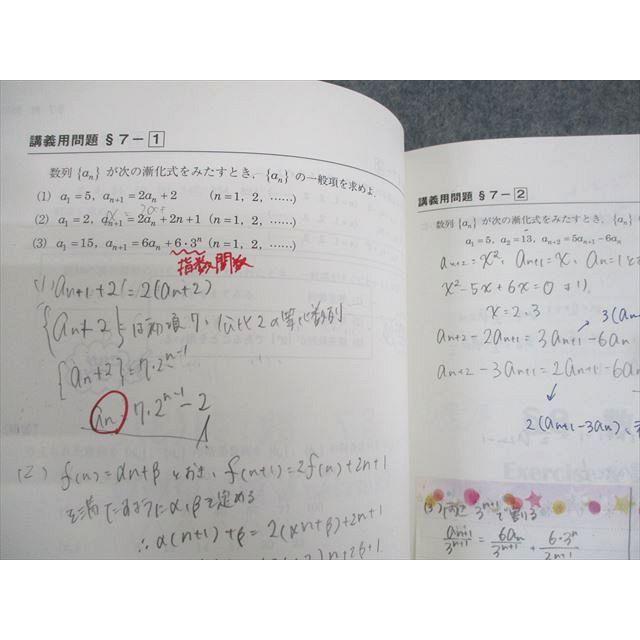 講義用問題 § 7－1
数列 {aₙ} が次の漸化式をみたすとき, {aₙ} の一般項を求めよ.
(1) a₁=5, aₙ₊₁=2aₙ+2 (n=1, 2, ……)
(2) a₁=2, aₙ₊₁=2aₙ+2n+1 (n=1, 2, ……)
(3) a₁=15, aₙ₊₁=6aₙ+6・3ⁿ (n=1, 2, ……)
指数関数
(1) aₙ₊₁+2=2(aₙ+2)
{aₙ+2}は初項7, 公比2の等比数列
{aₙ+2}=7・2ⁿ⁻¹
aₙ 7・2ⁿ⁻¹－2
(2) f(n)=αn+β とおき, f(n+1)=2f(n)+2n+1
を満たすようにα,βを定める
∴α(n+1)+β=2(αn+β)+2n+1
講義用問題 § 7－2
数列 {aₙ} が次の漸化式をみたすとき, {a
a₁=5, a₂=13, aₙ₊₂=5aₙ₊₁－6aₙ
aₙ₊₂=x², aₙ₊₁=x, aₙ=1と
x²－5x+6=0 より
x=2,3
3(aₙ
aₙ₊₂－2aₙ₊₁=3aₙ₊₁－6aₙ
aₙ₊₂－3aₙ₊₁=2aₙ₊₁－6a
2(aₙ₊₁－3aₙ)
(3) 3ⁿ⁺¹で割る
aₙ₊₁/3ⁿ⁺¹ = 6aₙ/3ⁿ⁺¹ + 6・3ⁿ/3ⁿ⁺¹